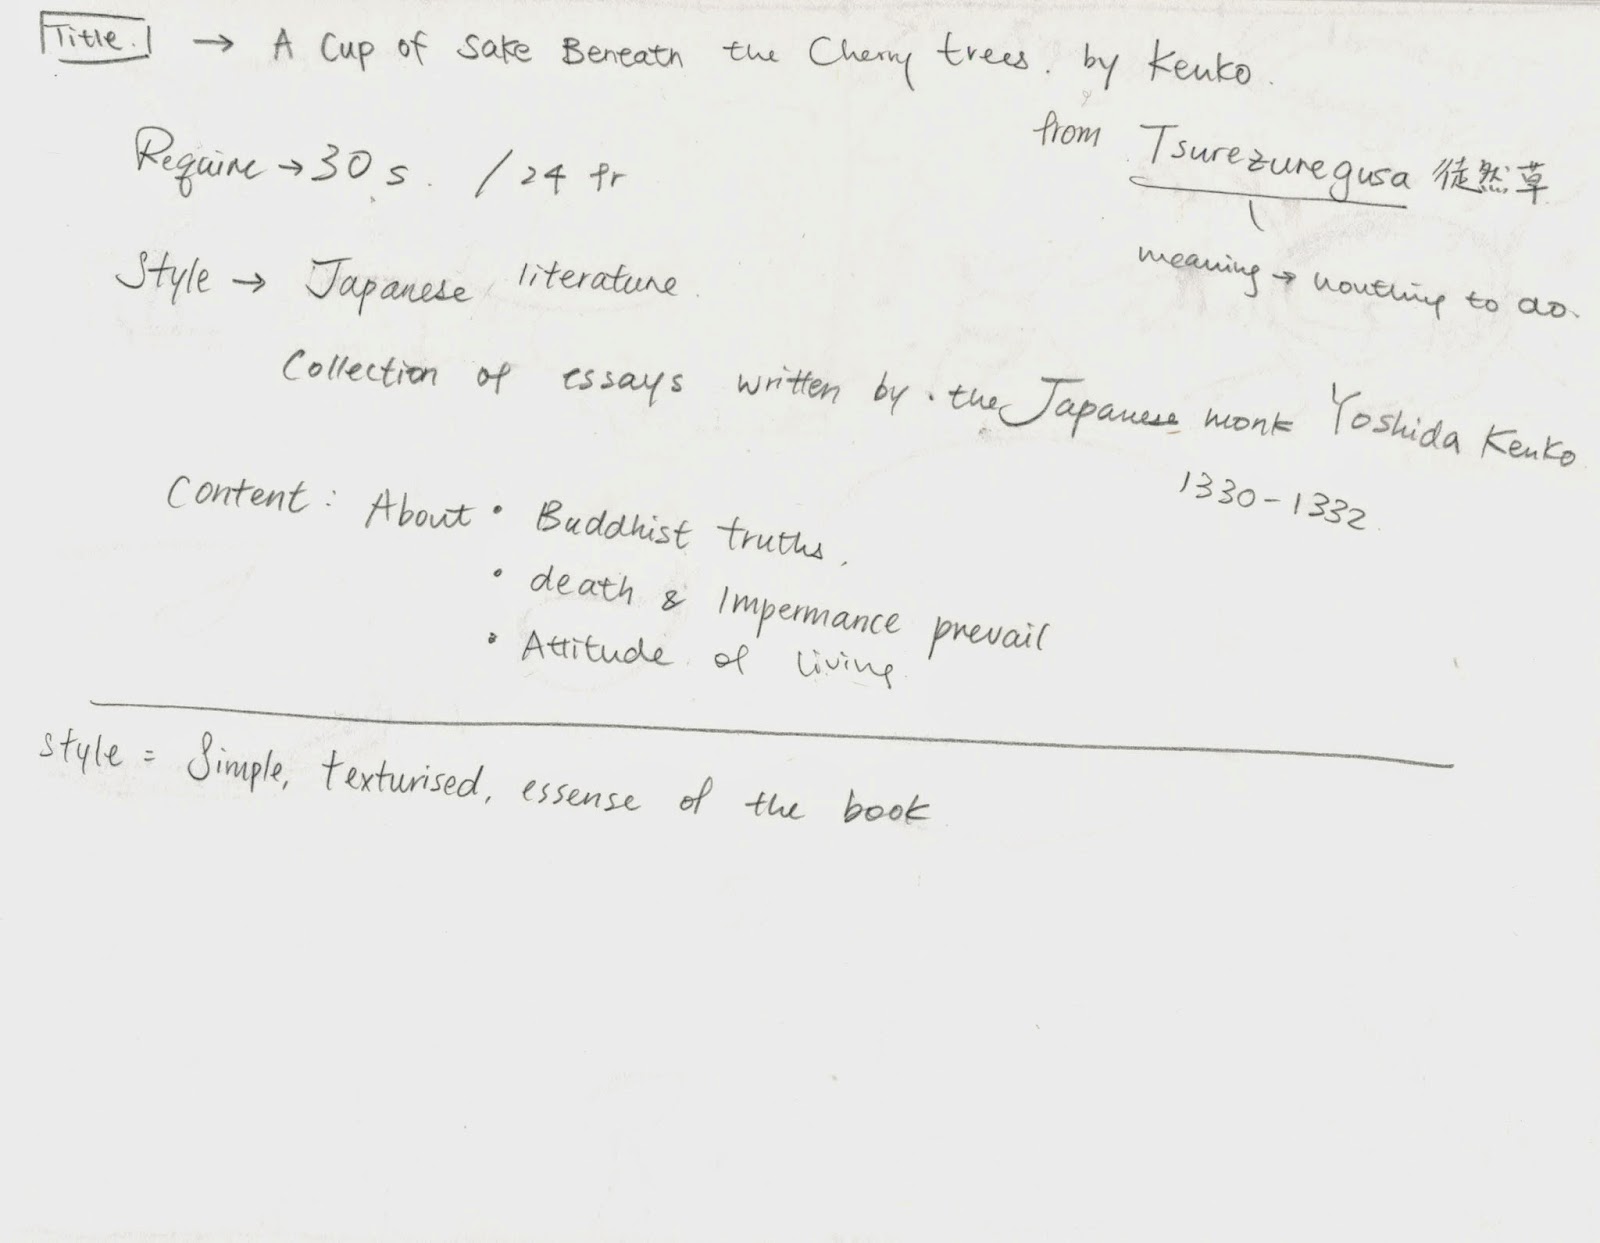 Title. → A Cup of Sake Beneath the Cherry trees. by Kenko.
from Tsurezuregusa 徒然草
Require → 30 s. / 24 fr
meaning → nouthing to do.
Style → Japanese literature.
Collection of essays written by. the Japanese monk Yoshida Kenko
1330-1332
Content: About • Buddhist truths.
• death & Impermance prevail
• Attitude of living
style = Simple, texturised, essense of the book